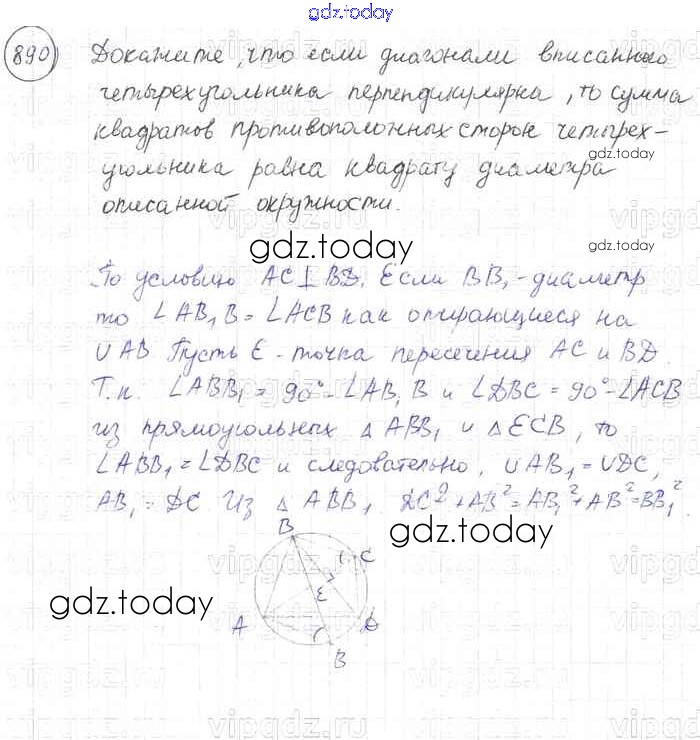 gdz.today
890
Докажите, что если диагонали вписанного
четырехугольника перпендикулярна, то сумма
квадратов противоположных сторон четырех-
gdz.today
угольника равна квадрату диаметра
описанной окружности.
gdz.today
gdz.today
По условию AC⊥BD. Если BB₁-диаметр
то ∠AB₁B = ∠ACB как опирающиеся на
∪AB Пусть E - точка пересечения AC и BD.
Т.к. ∠ABB₁ = 90°-∠AB₁B и ∠DBC = 90°-∠ACB
из прямоугольных △ABB₁ и △ECB, то
∠ABB₁ = ∠DBC и следовательно, ∪AB₁ = ∪DC,
AB₁ = DC Из △ABB₁ DC²+AB²=AB₁²+AB²=BB₁².
gdz.today
B
C
E
gdz.today
A
D
B